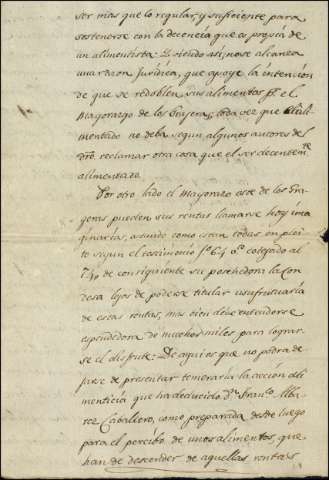 ser mas que lo regular, y suficiente para
sostenerse con la decencia que es propia de
un alimentista. Y siendo asi, no se alcanza
una razon Juridica, que apoye la intencion
de que se redoblen sus alimentos pr. el
Mayorazgo de los Grageras, toda vez que el ali
mentado no deba segun algunos autores del
dro. reclamar otra cosa que el ser decentemte
alimentado.
Por otro lado el Mayorazgo este de los Gra
geras pueden sus rentas llamarse hoy ima
ginarias, asiendo como estan todas en pley
to segun el testimonio fo. 64 cotejado al
740 de consiguiente su poseedora la Con
desa lejos de poderse titular usufructuaria
de estas rentas, mas bien debe entenderse
expendedora de muchos miles para lograr
se el disfrute. De aqui es que no podra de
jarse de presentar temeraria la accion ali
menticia que ha deducido Dn. Franco. Alva
rez Caballero, como preparada desde luego
para el percibo de unos alimentos, que
han de descender de aquellas rentas